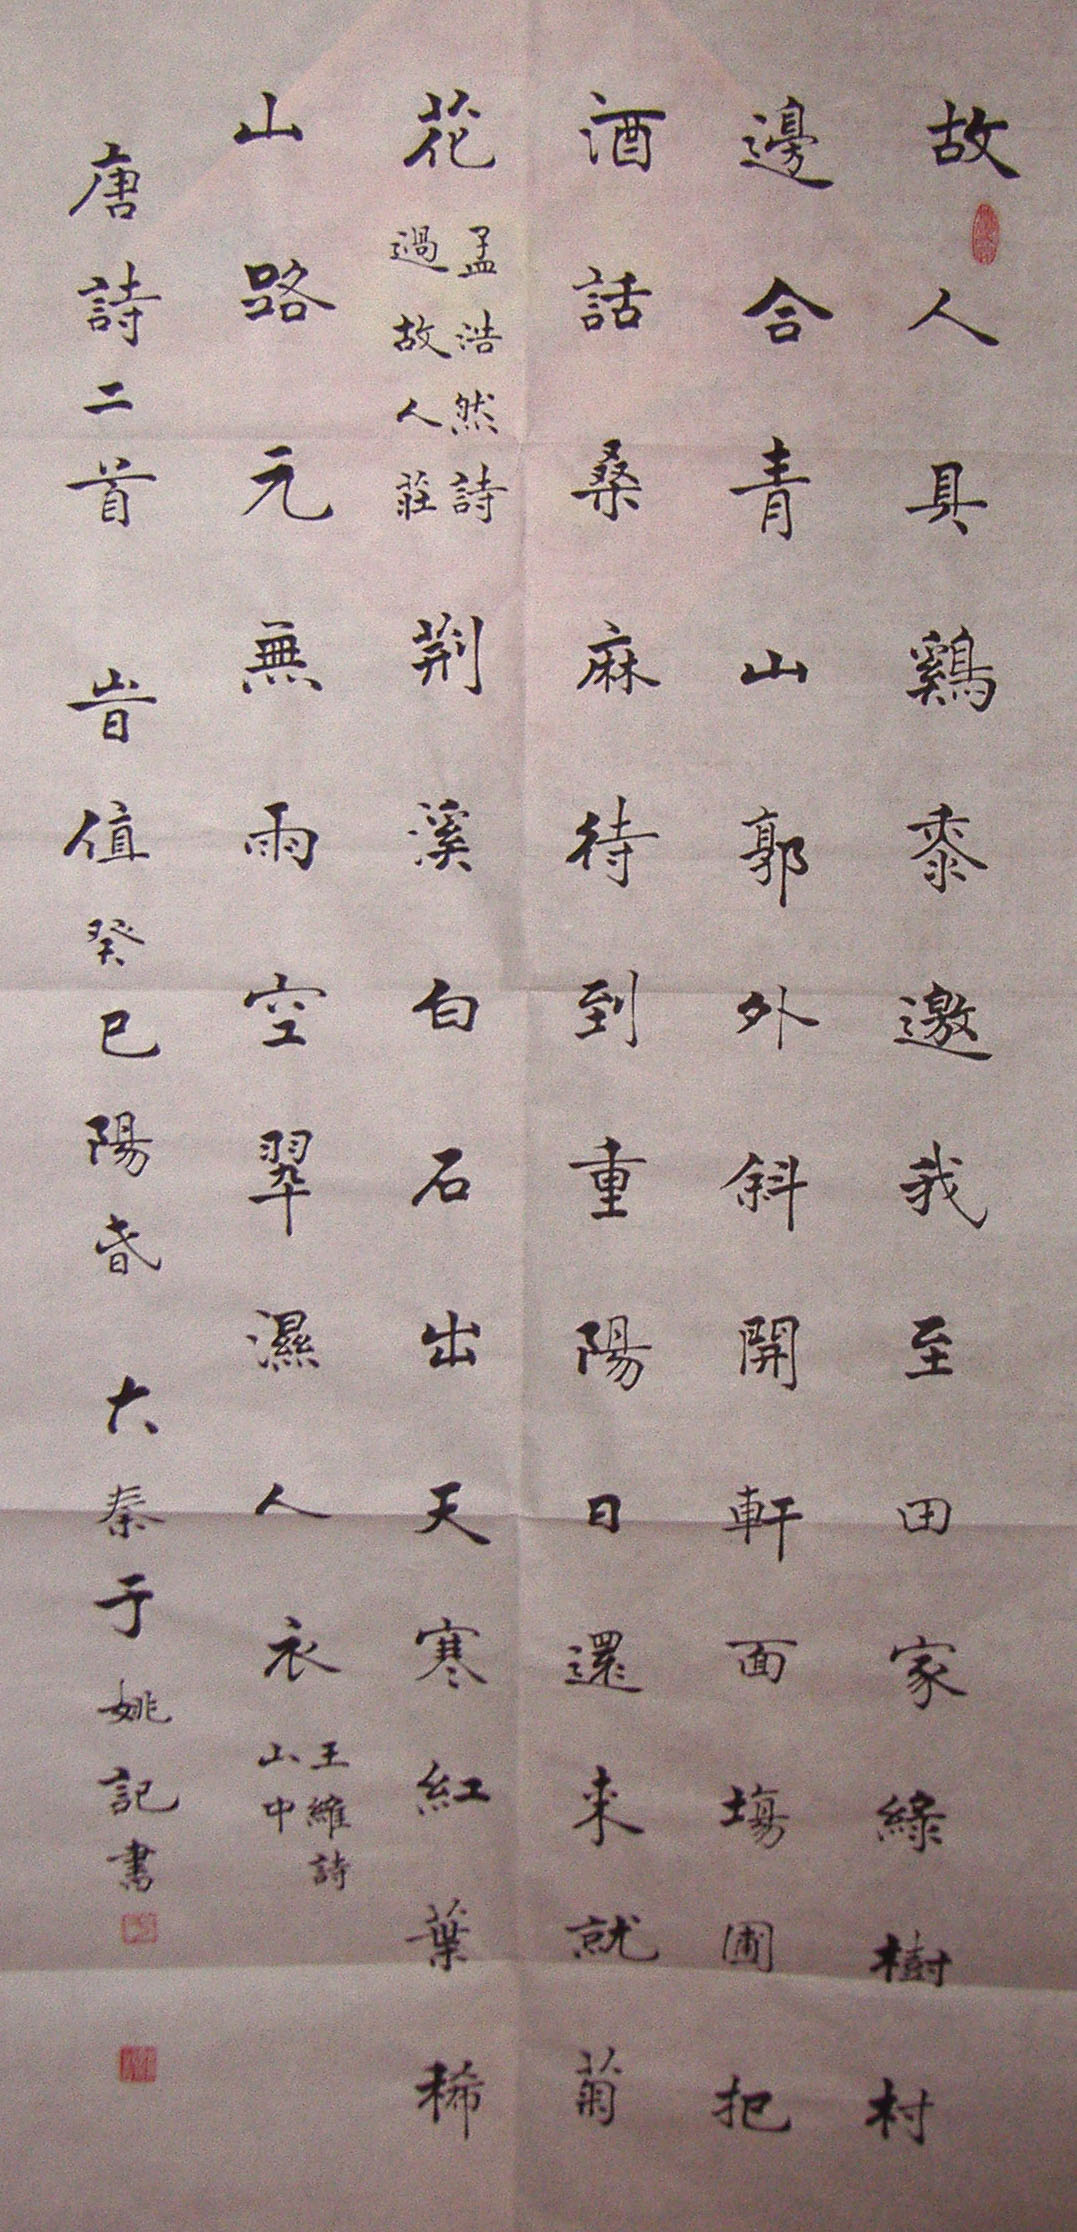 故人具鷄黍邀我至田家綠樹村
邊合青山郭外斜開軒面場圃把
酒話桑麻待到重陽日還来就菊
花
孟浩然詩
過故人莊
荆溪白石出天寒紅葉稀
山路元無雨空翠濕人衣
王維詩
山中
唐詩二首 旹值癸巳陽春 大秦于姚記書